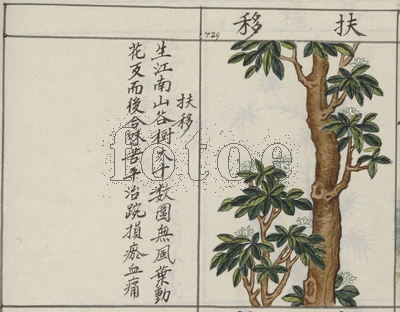 扶移
724
扶移
生江南山谷樹木十数圍無風葉動
花反而後合味苦平治踠損瘀血痛
fotoe